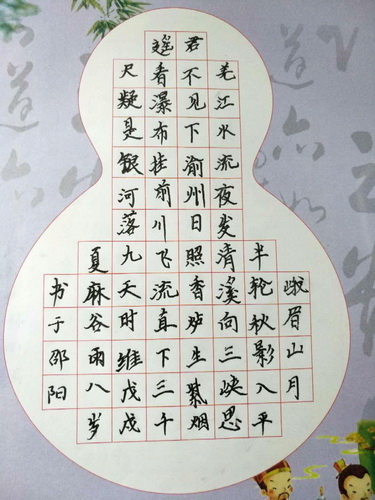 峨眉山月
半轮秋影入平
羌江水流夜发清溪向三峡思
君不见下渝州日照香炉生紫烟
遥看瀑布挂前川飞流直下三千
尺疑是银河落九天时维戊戌
夏麻谷雨八岁
书于邵阳